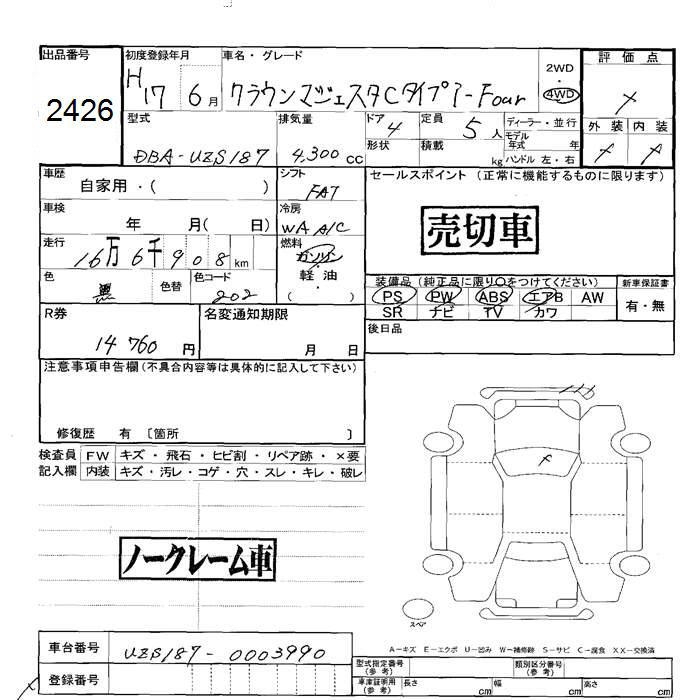 出品番号
2426
初度登録年月
H17 6月
車名・グレード
クラウンマジェスタCタイプ i-Four
2WD
・
4WD
評価点
外装 内装
型式
DBA-UZS187
排気量
4,300cc
ドア 4
形状
定員 5人
積載 kg
ディーラー・並行
モデル年式 年
ハンドル 左・右
車歴
自家用・( )
シフト
FAT
セールスポイント (正常に機能するものに限ります)
売切車
車検
年 月( 日)
冷房
WA A/C
走行
16万6千908km
燃料
ガソリン
・
軽油
・
( )
色
黒
色替
色コード
202
装備品(純正品に限り〇をつけてください)
PS PW ABS エアB AW
SR ナビ TV カワ
新車保証書
有・無
R券
14760円
名変通知期限
月 日
後日品
注意事項申告欄(不具合内容等は具体的に記入して下さい)
修復歴 有 〔箇所 〕
検査員 FW キズ・飛石・ヒビ割・リペア跡・×要
記入欄 内装 キズ・汚レ・コゲ・穴・スレ・キレ・破レ
ノークレーム車
スペア
A-キズ E-エクボ U-凹み W-補修跡 S-サビ C-腐食 XX-交換済
車台番号
UZS187-0003990
登録番号
型式指定番号(参考)
類別区分番号(参考)
車庫証明用(参考)
長さ cm 幅 cm 高さ cm